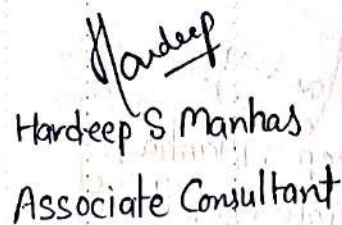 Hardeep
Hardeep S Manhas
Associate Consultant